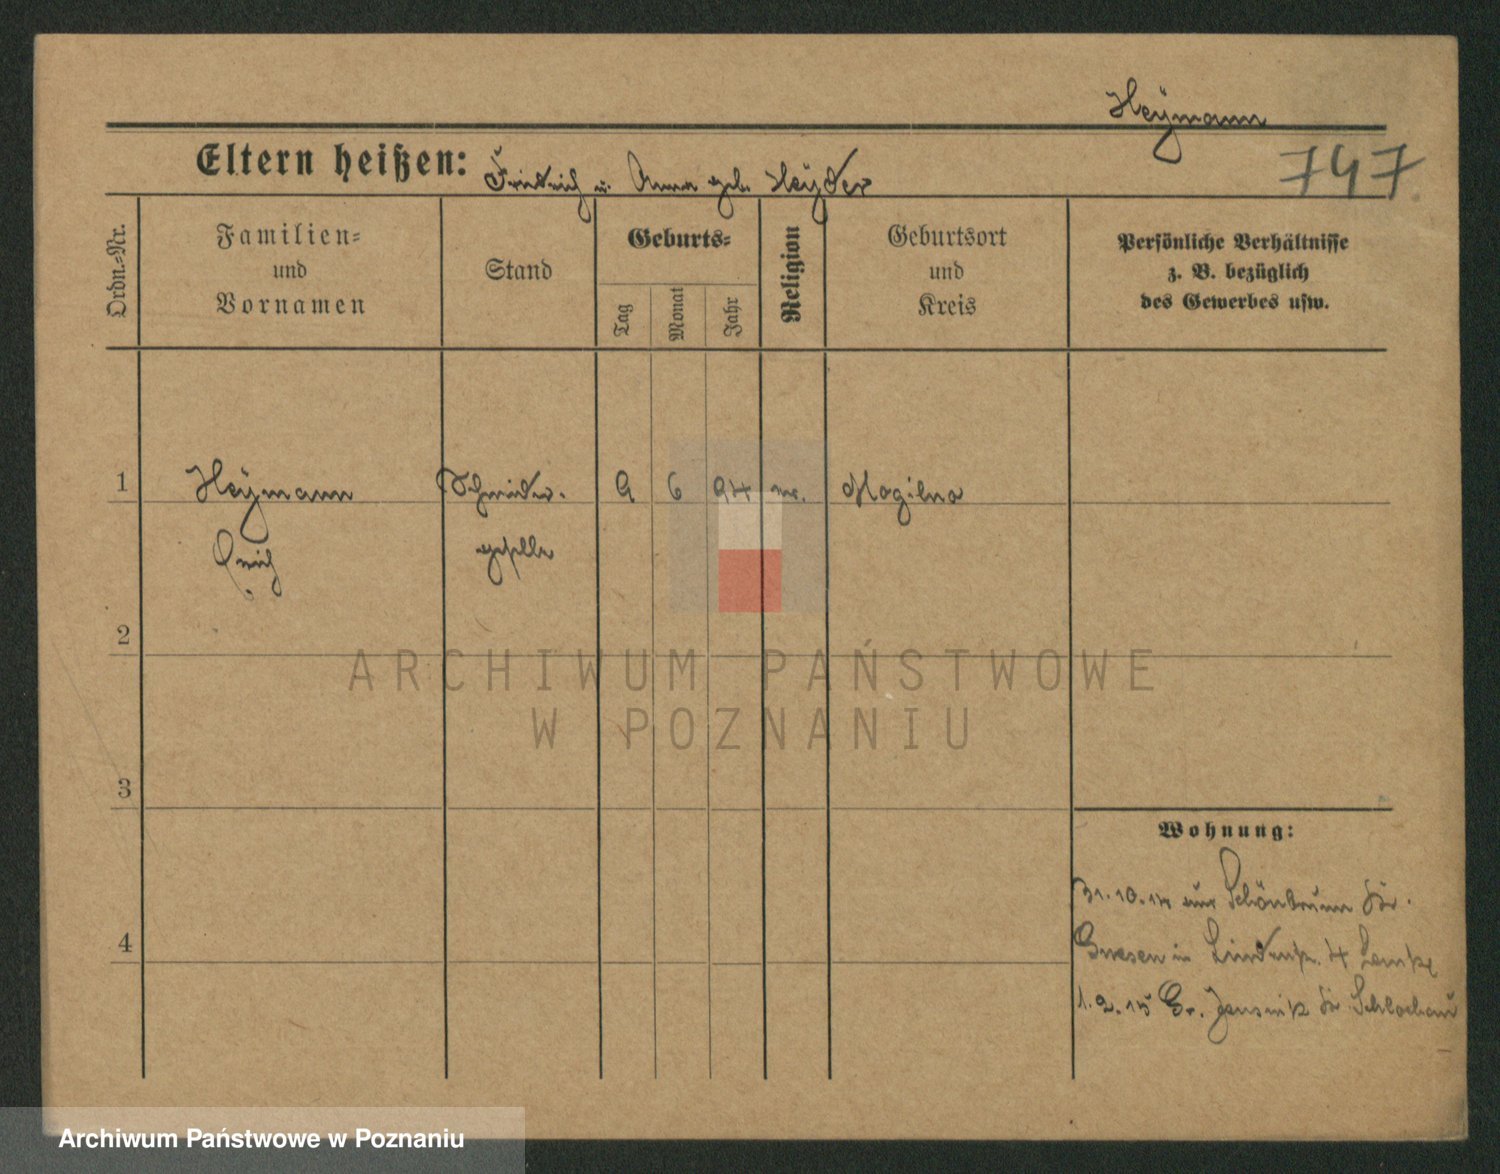 Heymann
747
Eltern heißen: Friedrich u. Anna geb. Heyder
Ordn.-Nr.
Familien-
und
Vornamen
Stand
Geburts-
Tag
Monat
Jahr
Religion
Geburtsort
und
Kreis
Persönliche Verhältnisse
z. B. bezüglich
des Gewerbes usw.
1 Heymann Schneider- 9 6 94 Mogilno
Erich geselle
2
3
4
Wohnung:
31.10.14 aus Schönbrunn Kr.
Gnesen in Lindenstr. 4 Lemke
1.2.15 Gr. Jenznik Kr Schlochau
ARCHIWUM PAŃSTWOWE
W POZNANIU
Archiwum Państwowe w Poznaniu